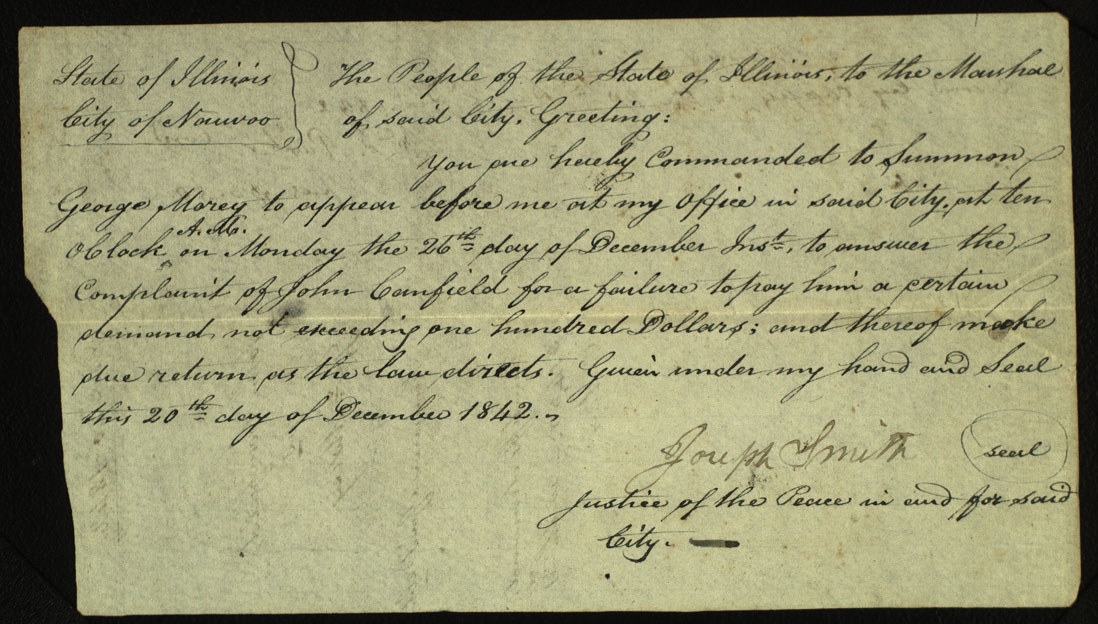 State of Illinois } The People of the State of Illinois, to the Marshal
City of Nauvoo } of said City, Greeting:
You are hereby Commanded to Summon
George Morey to appear before me at my office in said City, at ten
O'Clock A.M. on Monday the 26th day of December Inst., to answer the
Complaint of John Canfield for a failure to pay him a certain
demand not exceeding one hundred Dollars; and thereof make
due return as the law directs. Given under my hand and Seal
this 20th day of December 1842.
Joseph Smith seal
Justice of the Peace in and for said
City.